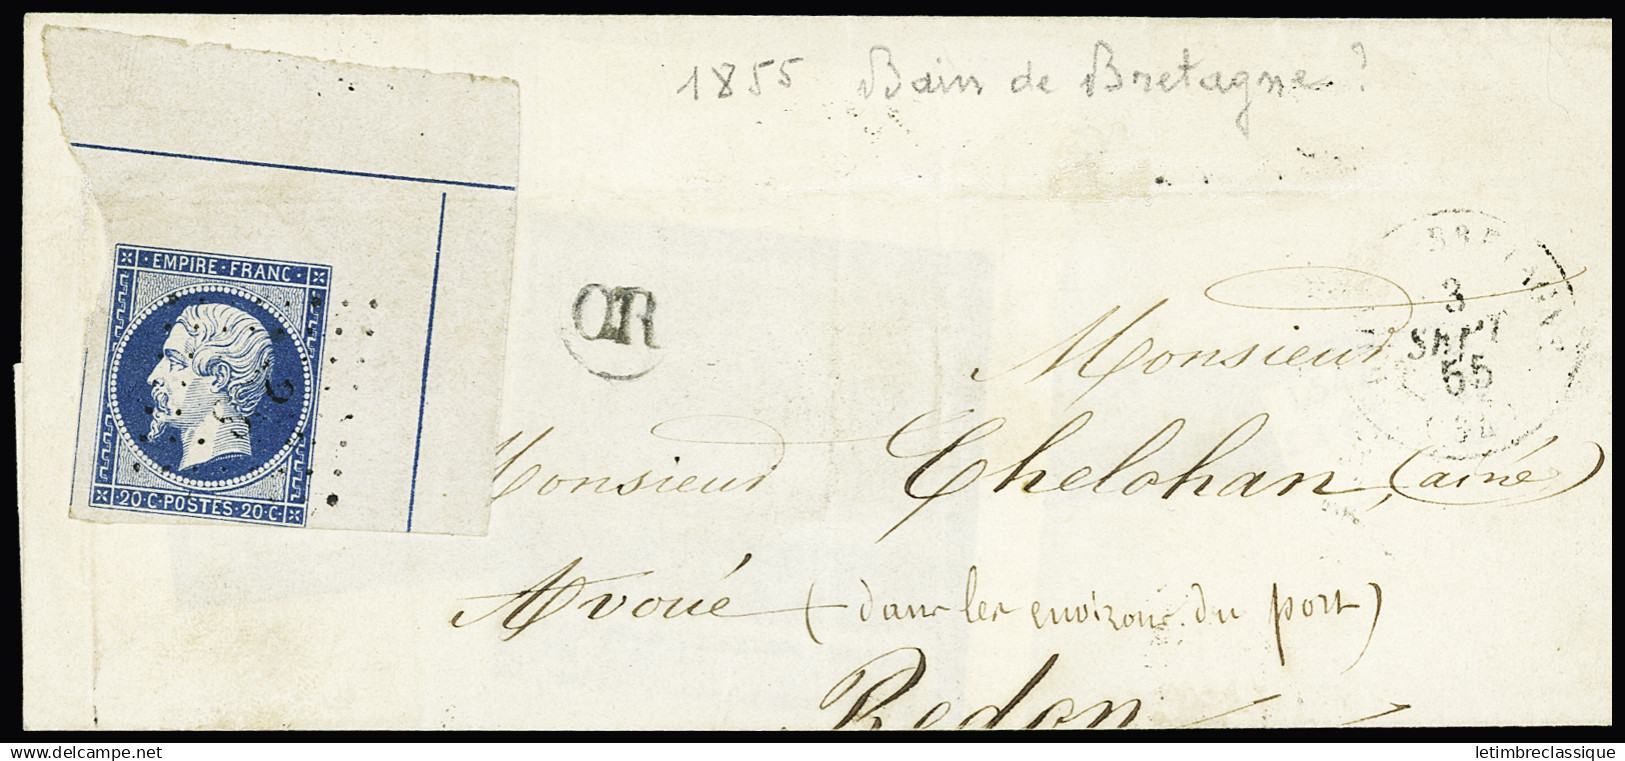 1855 Bain de Bretagne ?
EMPIRE · FRANC ·
20·C·POSTES·20·C·
OR
3
SEPT
55
Monsieur
Monsieur Chelohan, (ainé)
Avoué (dans les environs du port)
Redon
www.delcampe.net
letimbreclassique